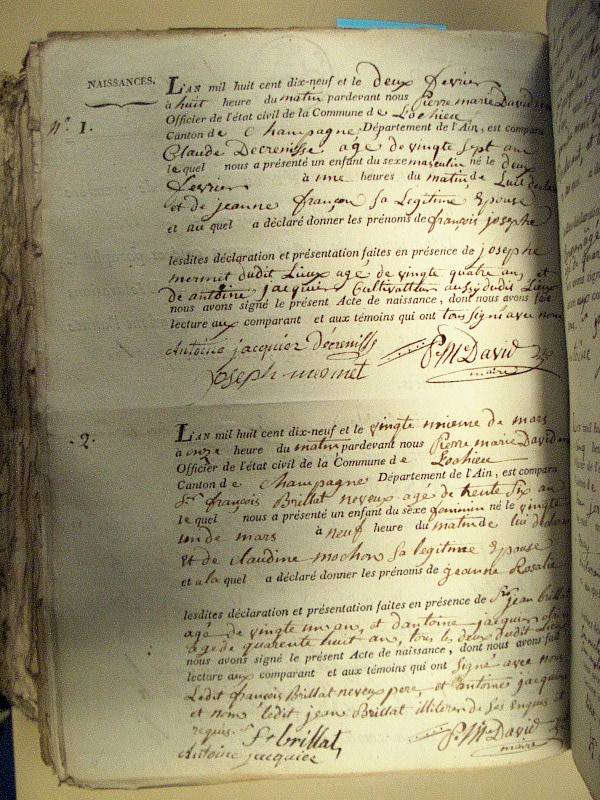 NAISSANCES.
N.º 1.
L'AN mil huit cent dix-neuf et le deux fevrier
à huit heure du matin pardevant nous Pierre marie David
Officier de l'état civil de la Commune de Lochieu
Canton de Champagne Département de l'Ain, est compara
Claude Decrenisse agé de vingte sept ans
le quel nous a présenté un enfant du sexe masculin né le deux
fevrier à une heures du matin, de Lui
et de jeanne françon sa Legitime Epouse
et au quel a déclaré donner les prénoms de françois josephe
lesdites déclaration et présentation faites en présence de josephe
mermet dudit Lieux agé de vingte quatre ans, et
de antoine jacquier Cultivatteur aussy dudis Lieux
nous avons signé le présent Acte de naissance, dont nous avons fait
lecture aux comparant et aux témoins qui ont tous signé avec nous
Antoine jacquier Décrenisse
P. Mie David
joseph mermet
maire
2.
L'AN mil huit cent dix-neuf et le vingte unieme de mars
à onze heure du matin pardevant nous Pierre marie David
Officier de l'état civil de la Commune de Lochieu
Canton de Champagne Département de l'Ain, est compara
Sr. françois Brillat neveux agé de trente six ans
le quel nous a présenté un enfant du sexe feminin né le vingte
un de mars à neuf heure du matin de lui
et de claudine mochon sa legitime Epouse
et a la quel a déclaré donner les prénoms de jeanne Rosalie
lesdites déclaration et présentation faites en présence de Sr. jean brillat
agé de vingte un an, et d'antoine jacquier
agé de quarente huit an, tous les deux dudit Lieux
nous avons signé le présent Acte de naissance, dont nous avons fait
lecture aux comparant et aux témoins qui ont signé avec nous
Ledit françois Brillat neveux pere et antoine jacquier
et non ledit jean Brillat illiteré de ses enquis et
requis.
fr brillat
P. Mie David
Antoine jacquier
maire